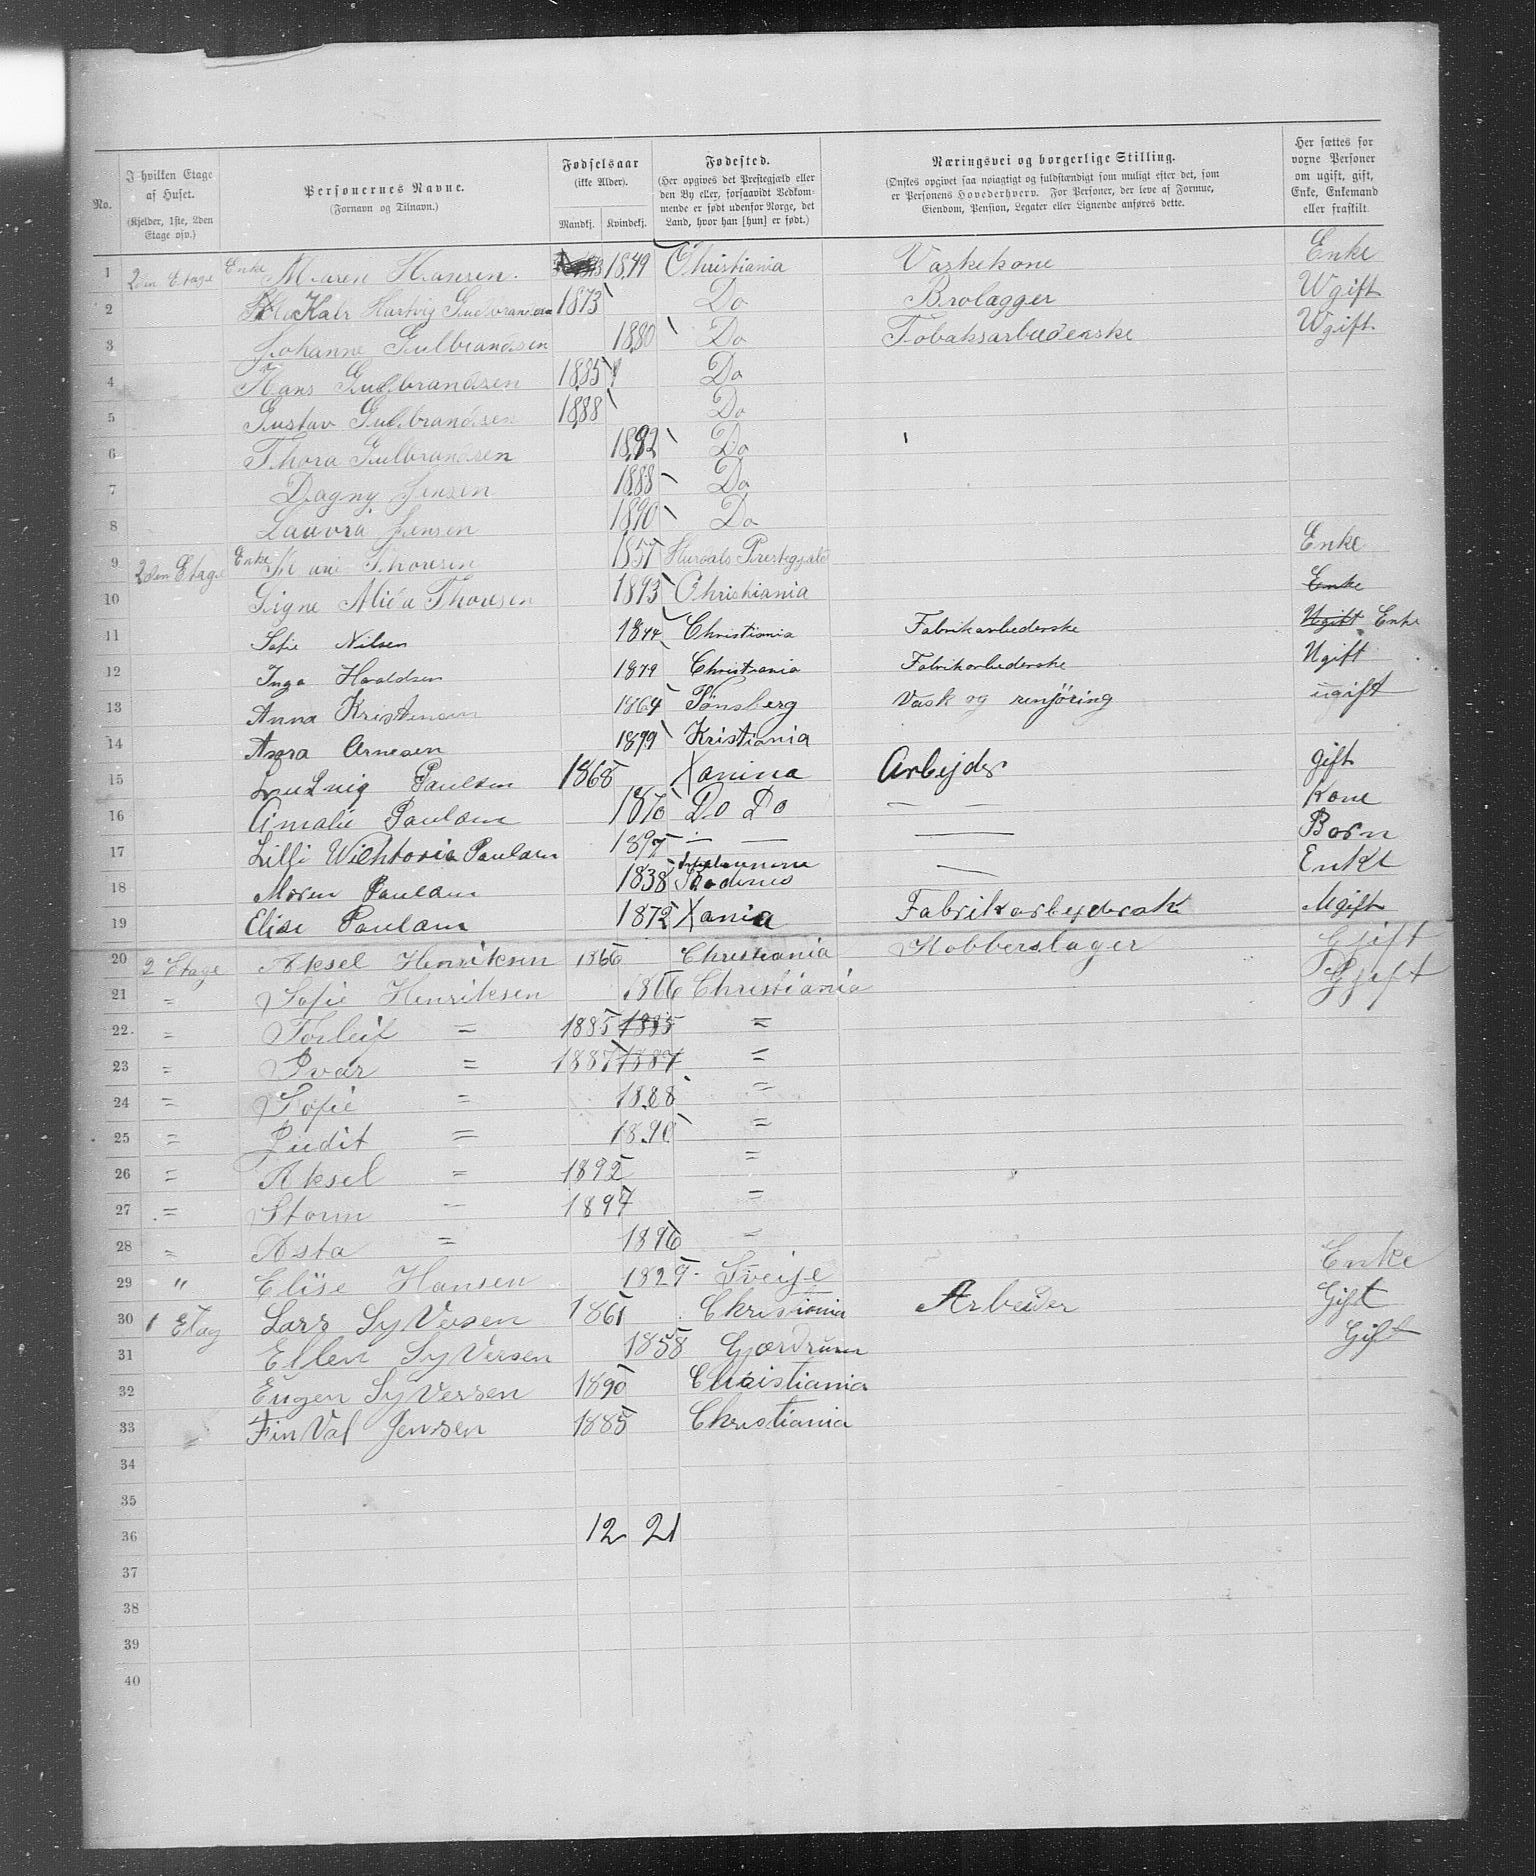 No.
I hvilken Etage af Huset. (Kjelder, 1ste, 2den Etage osv.)
Personernes Navne. (Fornavn og Tilnavn.)
Fødselsaar (ikke Alder). Mandkj. Kvindekj.
Fødested. (Her opgives det Prestegjæld eller den By eller, forsaavidt Vedkommende er født udenfor Norge, det Land, hvor han [hun] er født.)
Næringsvei og borgerlige Stilling. (Ønskes opgivet saa nøiagtigt og fuldstændigt som muligt efter det, som er Personens Hovederhverv. For Personer, der leve af Formue, Eiendom, Pension, Legater eller Lignende anføres dette.)
Her sættes for voxne Personer om ugift, gift, Enke, Enkemand eller fraskilt.
1 2den Etage Enke Maren Hansen 1849 Christiania Vaskekone Enke
2 Karl Hartvig Gulbrandsen 1873 Do Brolægger Ugift
3 Johanne Gulbrandsen 1880 Do Tobaksarbeiderske Ugift
4 Hans Gulbrandsen 1885 Do
5 Gustav Gulbrandsen 1888 Do
6 Thora Gulbrandsen 1892 Do
7 Dagny Jensen 1888 Do
8 Laura Jensen 1890 Do
9 2den Etage Enke Thoresen 1857 Hurdals Prestegjæld Enke
10 Signe Thoresen 1893 Christiania Enke
11 Sofie Nilsen 1844 Christiania Fabrikarbederske Ugift Enke
12 Inga Haraldsen 1879 Christiania Fabrikarbederske Ugift
13 Anna Kristensen 1864 Tönsberg Vask og renjöring ugift
14 Arnesen 1899 Kristiania
15 Ludvig Paulsen 1868 Xanina Arbejder gift
16 Amalie Paulsen 1870 Do Do — — Kone
17 Lilli Wichtoria Paulsen 1897 — — — Born
18 Maren Paulsen 1838 — Enke
19 Elise Paulsen 1872 Xania Fabrikarbejdersk Ugift
20 2 Etage Aksel Henriksen 1866 Christiania Kobberslager Gjift
21 " Sofie Henriksen 1866 Christiania Gjift
22 " Torleif = 1885 1885 =
23 " Ivar = 1887 1887 =
24 " Sofie = 1888 =
25 " Judit = 1890 =
26 " Aksel = 1892 =
27 " Storm = 1894 =
28 " Asta = 1896 =
29 " Elise Hansen 1829 Sveije Enke
30 1 Etag Lars Syversen 1861 Christiania Arbeider Gift
31 Ellen Syversen 1858 Gjærdrum Gift
32 Eugen Syversen 1890 Christiania
33 " Fin Val Jensen 1885 Christiania
34
35
36 12 21
37
38
39
40